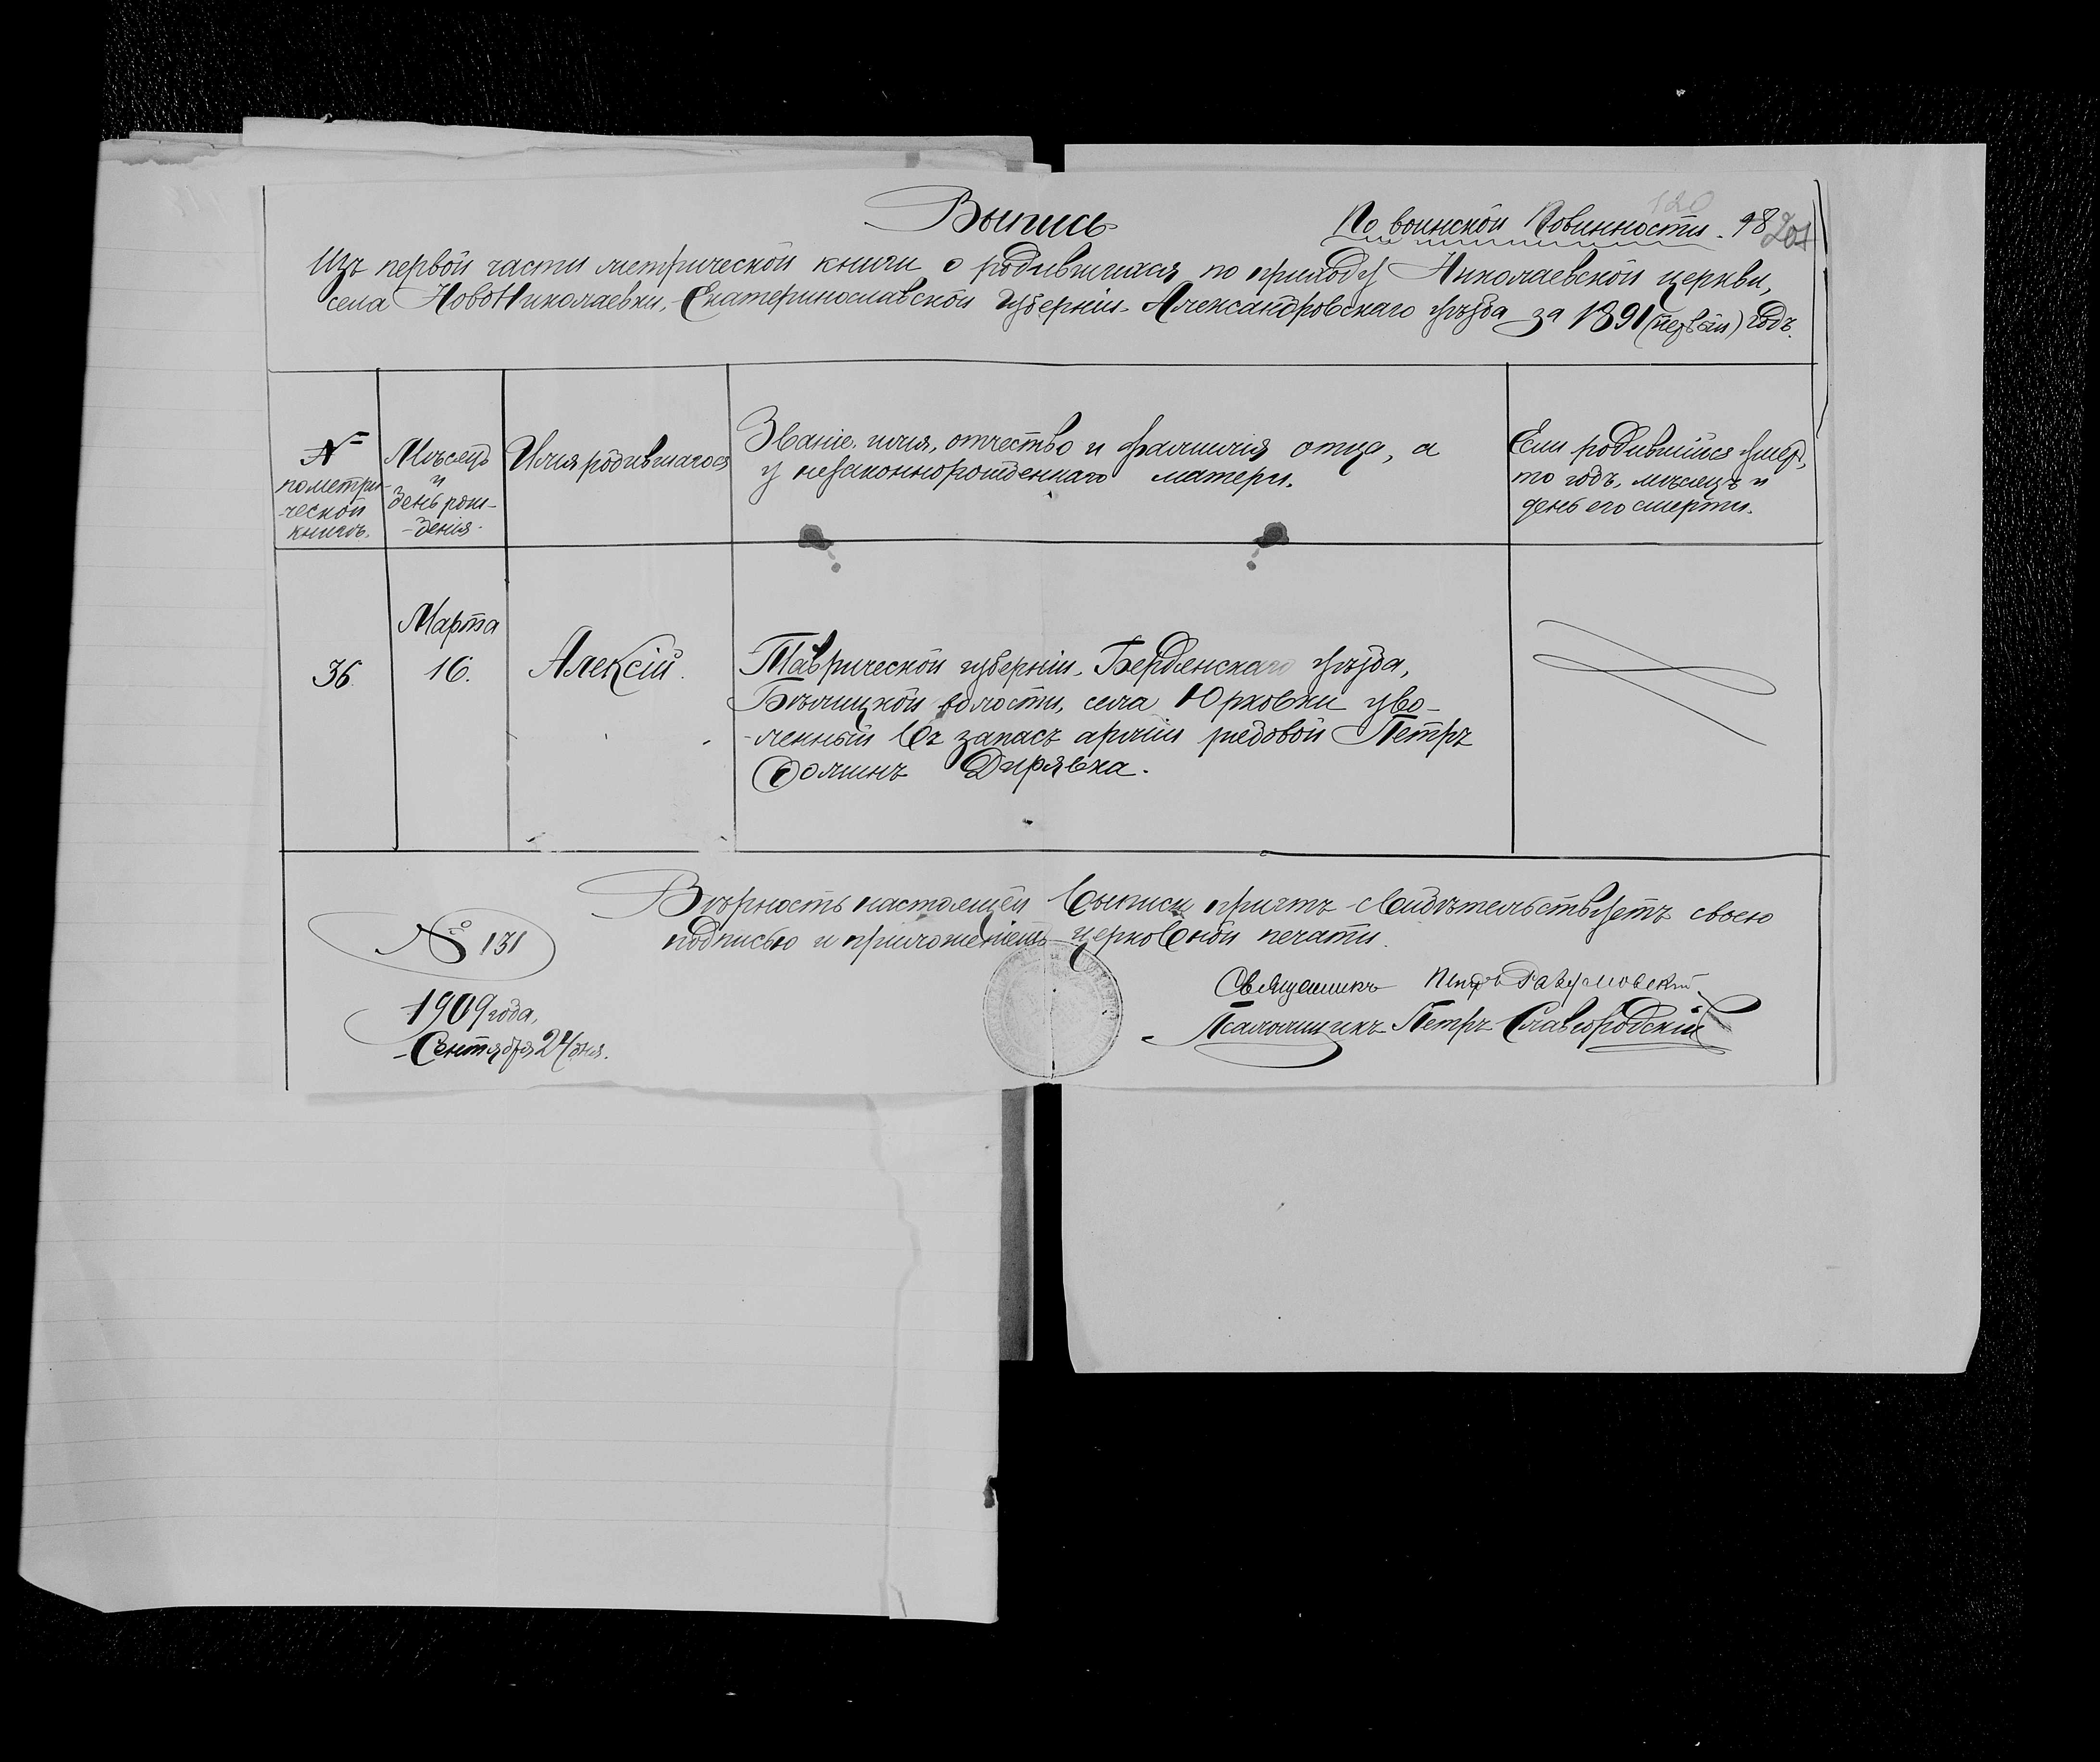 120
Выпись
По воинской Повинности. 98 201
Изъ первой части метрической книги о родившихся по приходу Николаевской церкви,
села НовоНиколаевки, Екатеринославской Губерніи Александровскаго уѣзда за 1891 (первый) годъ.
№
по метри-
-ческой
книгѣ.
Мѣсецъ
и
день рож-
-денія.
Имя родившагося
Званіе, имя, отчество и фамилія отца, а
у незаконнорожденнаго матери.
Если родившійся умеръ,
то годъ, мѣсяцъ и
день его смерти.
36.
Марта
16.
Алексій.
Таврической губерніи, Бердянскаго уѣзда,
волости, села Юрковки уво-
-ленный въ запасъ арміи рядовой Петръ
Фоминъ Дирявка.
Вѣрность настоящей выписи причтъ свидѣтельствуетъ своею
подписью и приложеніемъ церковной печати.
№ 131
1909 года,
Сентября 24 дня.
Священникъ Петръ
Псаломщикъ Петръ Славгородскій